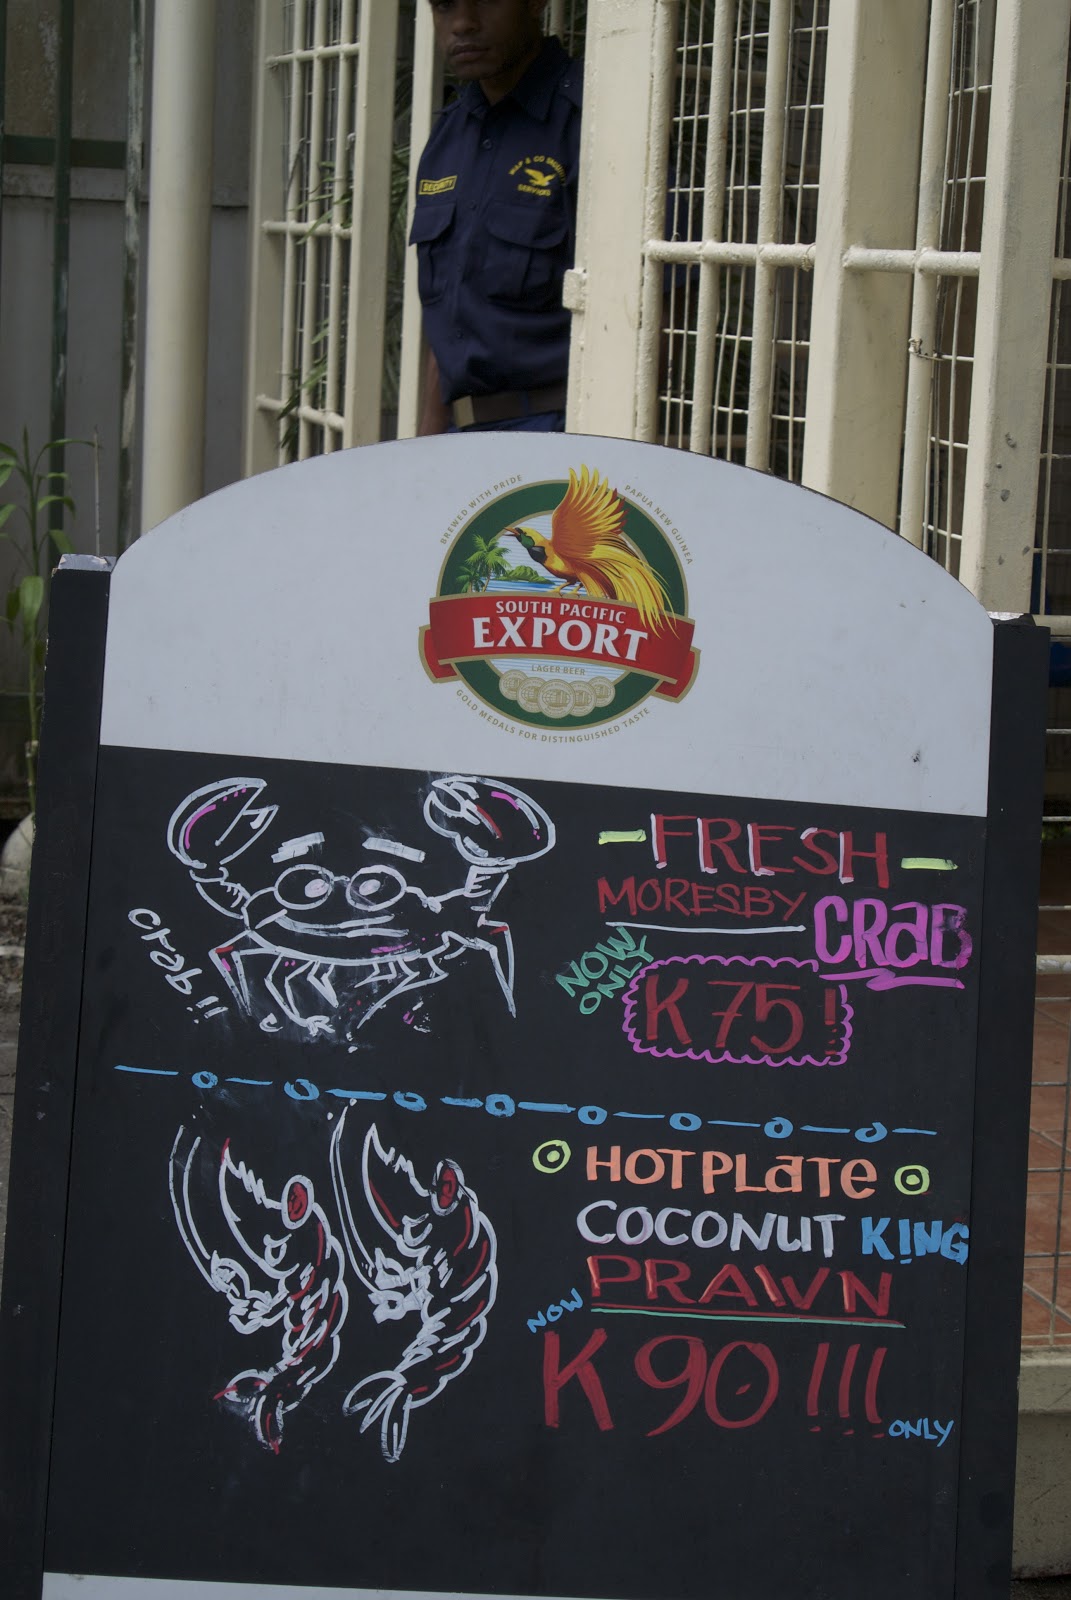 SECURITY
& CO SECURITY
SERVICES
BREWED WITH PRIDE
PAPUA NEW GUINEA
SOUTH PACIFIC
EXPORT
LAGER BEER
GOLD MEDALS FOR DISTINGUISHED TASTE
crab!!
- FRESH -
MORESBY
CRaB
NOW
ONLY
K75!
HOTPLaTe
COCONUT KiNG
PRAWN
NOW
K90!!!
ONLY